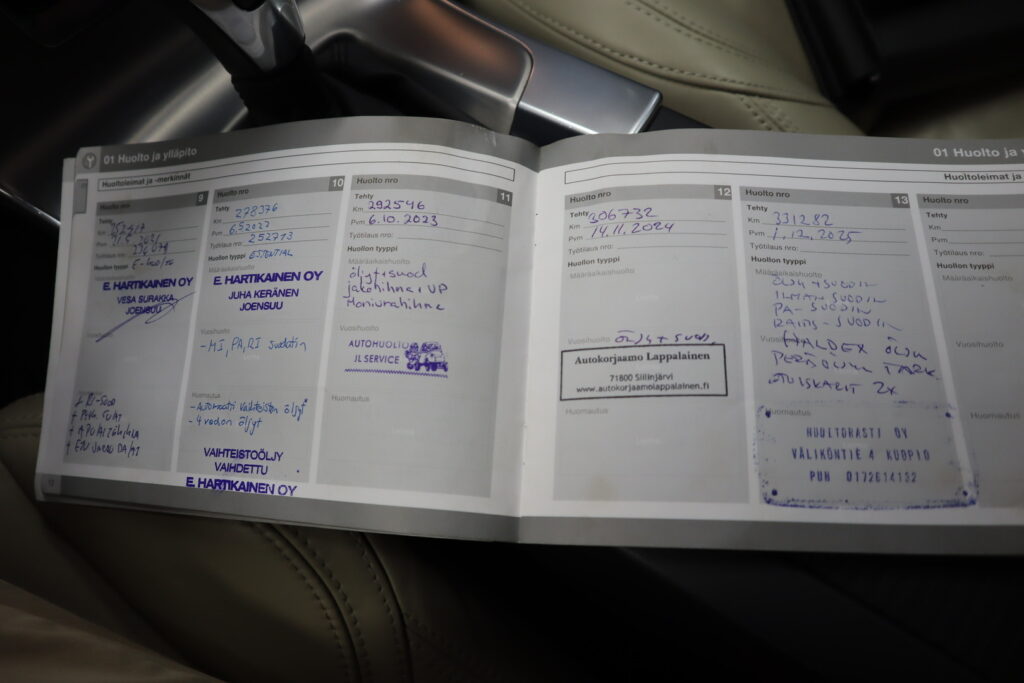 01 Huolto ja ylläpito
Huoltoleimat ja -merkinnät
9
Tehty
Km
Pvm
Työtilaus nro:
Huollon tyyppi
E. HARTIKAINEN OY
VESA SURAKKA
JOENSUU
Vuosihuolto
Huolto nro 10
Tehty
278376
Km
Pvm
Työtilaus nro: 252713
Huollon tyyppi ESSENTIAL
Määräaikaishuolto
E. HARTIKAINEN OY
JUHA KERÄNEN
JOENSUU
Vuosihuolto
- MI, PA, RI suodatin
Huomautus
- Automaatti vaihteiston öljyt
- 4 vedon öljyt
VAIHTEISTOÖLJY
VAIHDETTU
E. HARTIKAINEN OY
Huolto nro 11
Tehty
Km 292546
Pvm 6.10.2023
Työtilaus nro:
Huollon tyyppi
Määräaikaishuolto
öljyt+suod
jakohihna + VP
Moniurahihna
Vuosihuolto
AUTOHUOLTO
JL SERVICE
Huomautus
01 Huolto ja
Huoltoleimat ja
Huolto nro 12
Tehty
Km 306732
Pvm 14.11.2024
Työtilaus nro:
Huollon tyyppi
Määräaikaishuolto
Vuosihuolto Öljy + suod.
Autokorjaamo Lappalainen
71800 Siilinjärvi
www.autokorjaamolappalainen.fi
Huomautus
Huolto nro 13
Tehty
Km 331282
Pvm 1.12.2025
Työtilaus nro:
Huollon tyyppi
Määräaikaishuolto
ÖLJY + SUODIN
ILMAN SUODIN
PA- SUODIN
RAITIS- SUODIN
Vuosihuolto
HALDEX ÖLJY
PERÄÖLJYN TARK.
ETUISKARIT 2X
Huomautus
HUOLTORASTI OY
VÄLIKÖNTIE 4 KUOPIO
PUH 0172614132
Huolto nro
Tehty
Km
Pvm
Työtilaus nro:
Huollon tyyppi
Määräaikaishuolto
Vuosihuolto
Huomautus